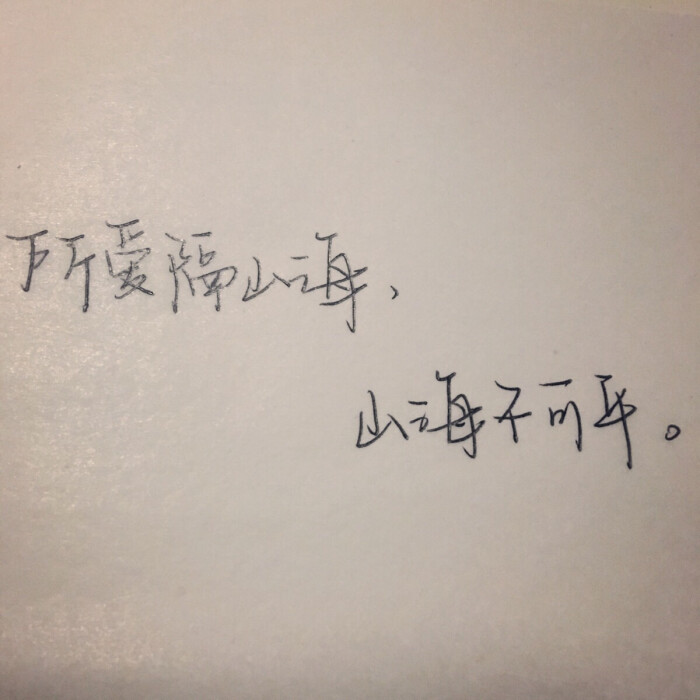 所爱隔山海，
山海不可平。